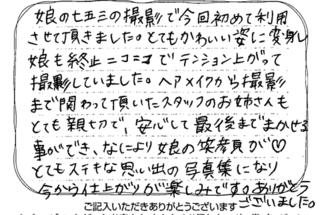 娘の七五三の撮影で今回初めて利用
させて頂きました。とてもかわいい姿に変身し
娘も終止ニコニコでテンション上がって
撮影していました。ヘアメイクから撮影
まで関わって頂いたスタッフのお姉さんも
とても親切で、安心して最後までまかせる
事ができ、なにより娘の笑顔が♡
とてもステキな思い出の写真集になり
今から仕上がりが楽しみです。ありがとう
ございました。
ご記入いただきありがとうございます